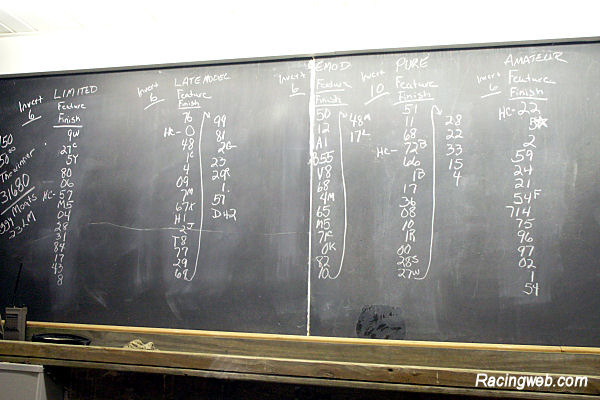 150
50 to
The winner
31680
Moats
23KM
Invert
6
LIMITED
Feature
Finish
9W
27c
5Y
80
06
HC- 57
M5
04
28
31
84
17
43
8
Invert
6
LATE MODEL
Feature
Finish
76
HC- 0
48
1c
4
09
7M
67K
H1
2J
T8
77
29
69
99
81
23
29R
1.
57
D42
Invert
6
EMOD
Feature
Finish
50
12
A1
B55
V8
68
4M
65
M5
7F
0K
82
10
48M
17L
Invert
10
PURE
Feature
Finish
51
11
68
HC- 72B
66
1B
17
36
08
10
1R
00
28S
27W
28
22
33
15
4
Invert
6
AMATEUR
Feature
Finish
HC- 22
2
59
24
21
54F
714
75
96
97
02
1
54
Racingweb.com